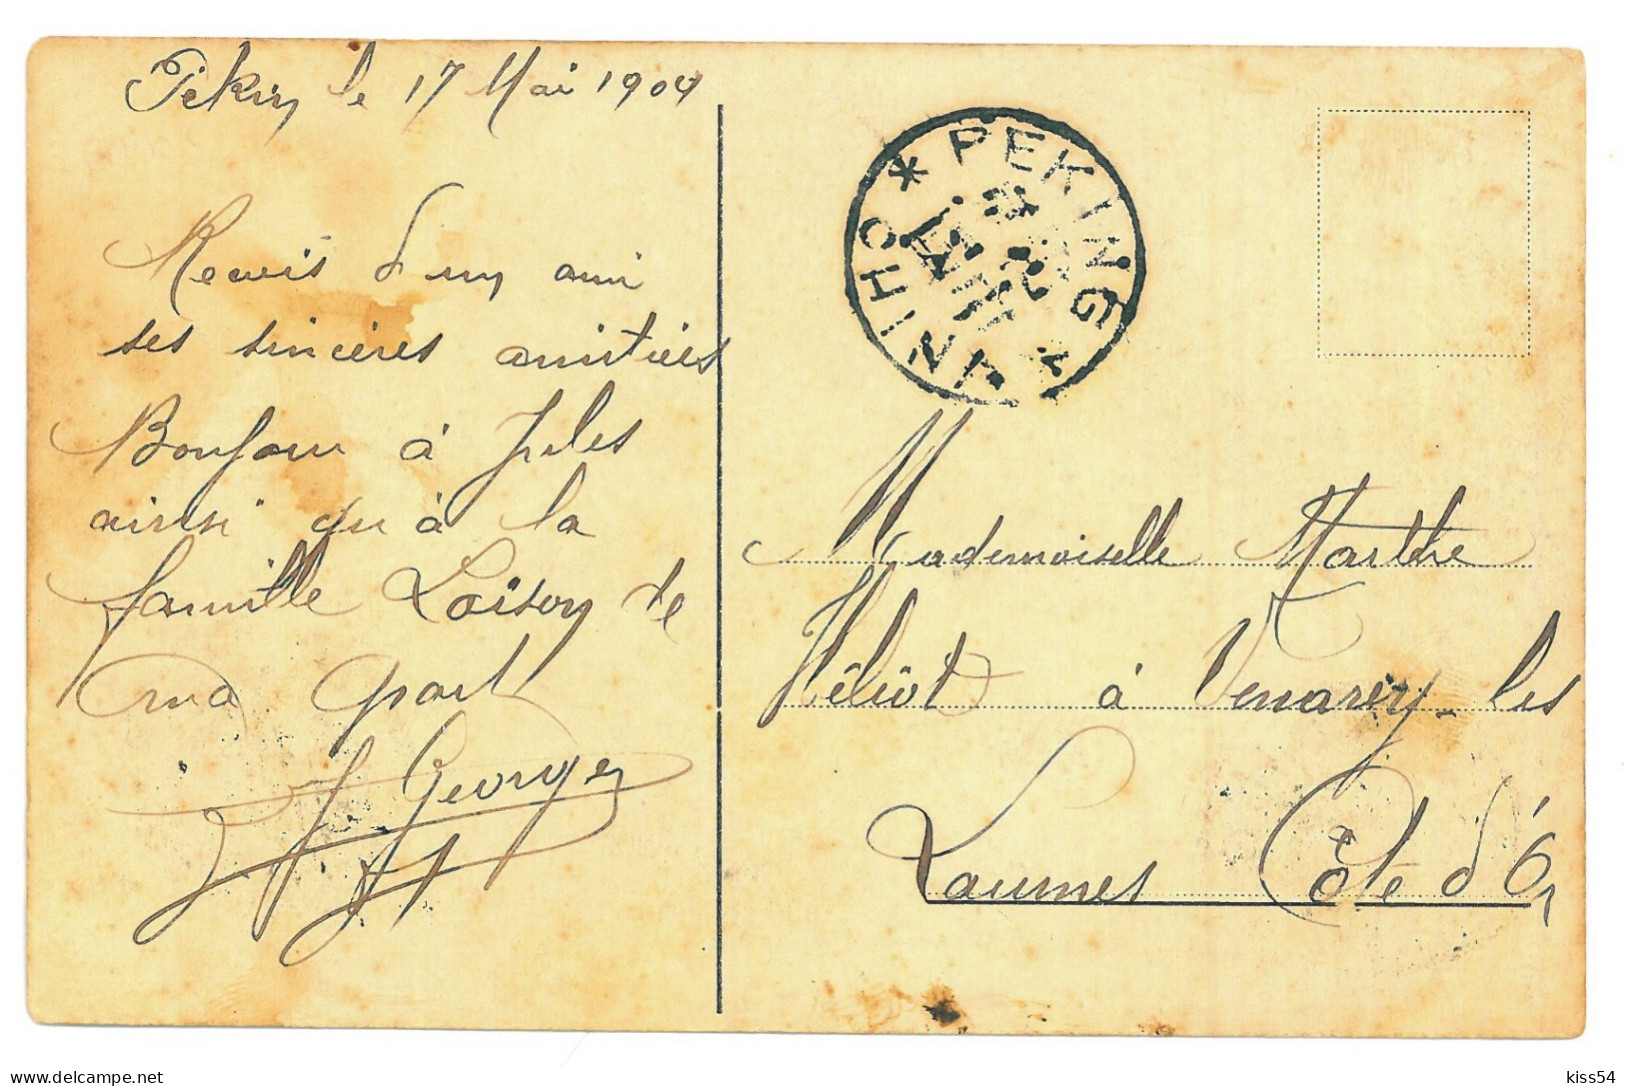 Pekin le 17 Mai 1909
Reçois d'un ami
ses sincères amitiés
Bonjour à Jules
ainsi qu'à la
famille Loison de
ma part
Georges
* PEKING *
CHINA
Mademoiselle Marthe
Héliot à Venarey-les
Laumes Côte d'Or
delcampe.net
kiss54